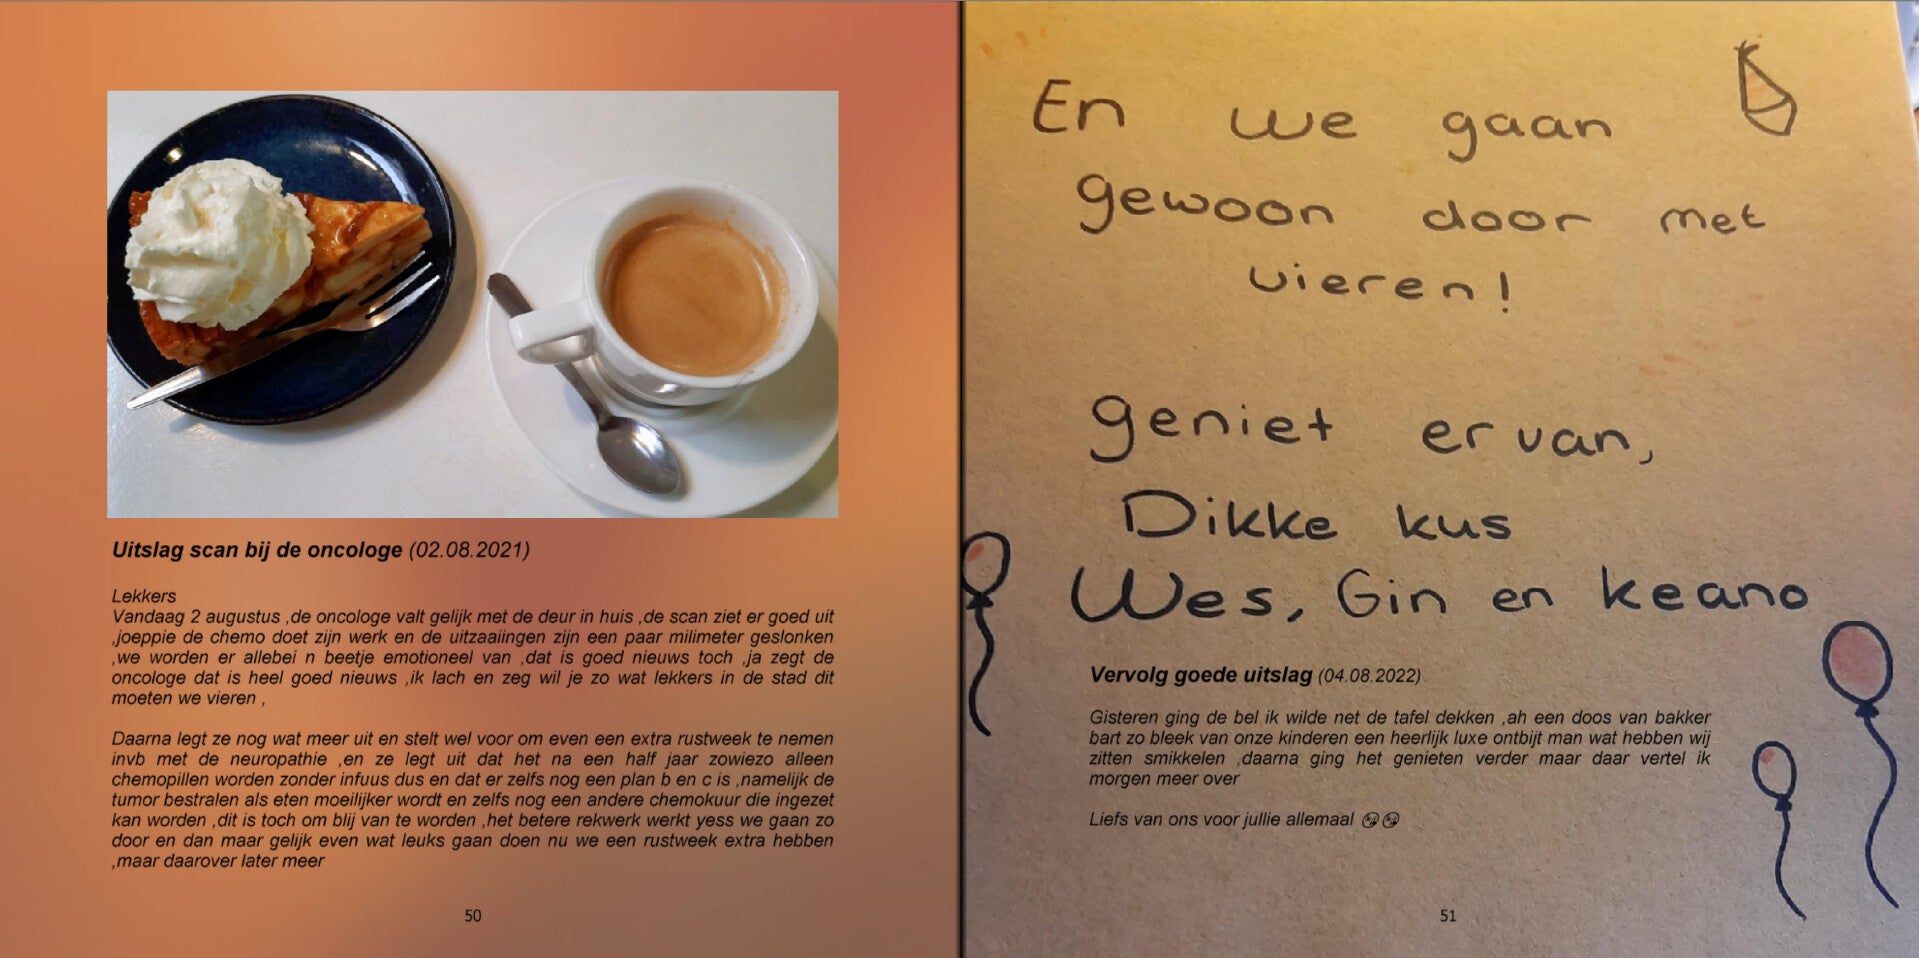 Uitslag scan bij de oncologe (02.08.2021)
Lekkers
Vandaag 2 augustus ,de oncologe valt gelijk met de deur in huis ,de scan ziet er goed uit
,joeppie de chemo doet zijn werk en de uitzaaiingen zijn een paar milimeter geslonken
,we worden er allebei n beetje emotioneel van ,dat is goed nieuws toch ,ja zegt de
oncologe dat is heel goed nieuws ,ik lach en zeg wil je zo wat lekkers in de stad dit
moeten we vieren ,
Daarna legt ze nog wat meer uit en stelt wel voor om even een extra rustweek te nemen
invb met de neuropathie ,en ze legt uit dat het na een half jaar zowiezo alleen
chemopillen worden zonder infuus dus en dat er zelfs nog een plan b en c is ,namelijk de
tumor bestralen als eten moeilijker wordt en zelfs nog een andere chemokuur die ingezet
kan worden ,dit is toch om blij van te worden ,het betere rekwerk werkt yess we gaan zo
door en dan maar gelijk even wat leuks gaan doen nu we een rustweek extra hebben
,maar daarover later meer
50
En we gaan
gewoon door met
vieren!
geniet er van,
Dikke kus
Wes, Gin en keano
Vervolg goede uitslag (04.08.2022)
Gisteren ging de bel ik wilde net de tafel dekken ,ah een doos van bakker
bart zo bleek van onze kinderen een heerlijk luxe ontbijt man wat hebben wij
zitten smikkelen ,daarna ging het genieten verder maar daar vertel ik
morgen meer over
Liefs van ons voor jullie allemaal 😘😘
51